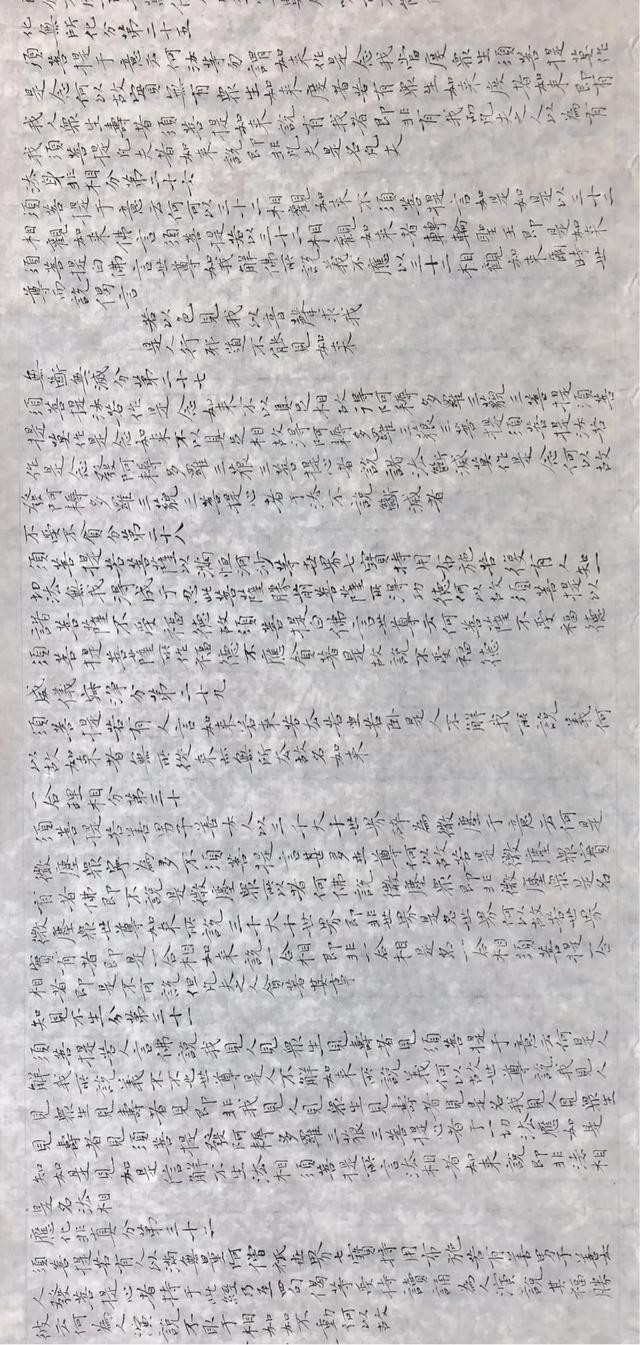 化無所化分第二十五
須菩提于意云何汝等勿謂如來作是念我當度眾生須菩提莫作
是念何以故實無有眾生如來度者若有眾生如來度者如來即有
我人眾生壽者須菩提如來說有我者即非有我而凡夫之人以為有
我須菩提凡夫者如來說即非凡夫是名凡夫
法身非相分第二十六
須菩提于意云何可以三十二相觀如來不須菩提言如是如是以三十二
相觀如來佛言須菩提若以三十二相觀如來者轉輪聖王即是如來
須菩提白佛言世尊如我解佛所說義不應以三十二相觀如來爾時世
尊而說偈言
若以色見我以音聲求我
是人行邪道不能見如來
無斷無滅分第二十七
須菩提汝若作是念如來不以具足相故得阿耨多羅三藐三菩提須菩
提莫作是念如來不以具足相故得阿耨多羅三藐三菩提須菩提汝若
作是念發阿耨多羅三藐三菩提心者說諸法斷滅莫作是念何以故
發阿耨多羅三藐三菩提心者于法不說斷滅者
不受不貪分第二十八
須菩提若菩薩以滿恒河沙等世界七寶持用布施若復有人知一
切法無我得成于忍此菩薩勝前菩薩所得功德何以故須菩提以
諸菩薩不受福德故須菩提白佛言世尊云何菩薩不受福德
須菩提菩薩所作福德不應貪著是故說不受福德
威儀寂淨分第二十九
須菩提若有人言如來若來若去若坐若臥是人不解我所說義何
以故如來者無所從來亦無所去故名如來
一合理相分第三十
須菩提若善男子善女人以三千大千世界碎為微塵于意云何是
微塵眾寧為多不須菩提言甚多世尊何以故若是微塵眾實
有者佛即不說是微塵眾所以者何佛說微塵眾即非微塵眾是名
微塵眾世尊如來所說三千大千世界即非世界是名世界何以故若世界
實有者即是一合相如來說一合相即非一合相是名一合相須菩提一合
相者即是不可說但凡夫之人貪著其事
知見不生分第三十一
須菩提若人言佛說我見人見眾生見壽者見須菩提于意云何是人
解我所說義不不也世尊是人不解如來所說義何以故世尊說我見人
見眾生見壽者見即非我見人見眾生見壽者見是名我見人見眾生
見壽者見須菩提發阿耨多羅三藐三菩提心者于一切法應如是
知如是見如是信解不生法相須菩提所言法相者如來說即非法相
是名法相
應化非真分第三十二
須菩提若有人以滿無量阿僧祇世界七寶持用布施若有善男子善女
人發菩提心者持于此經乃至四句偈等受持讀誦為人演說其福勝
彼云何為人演說不取于相如如不動何以故